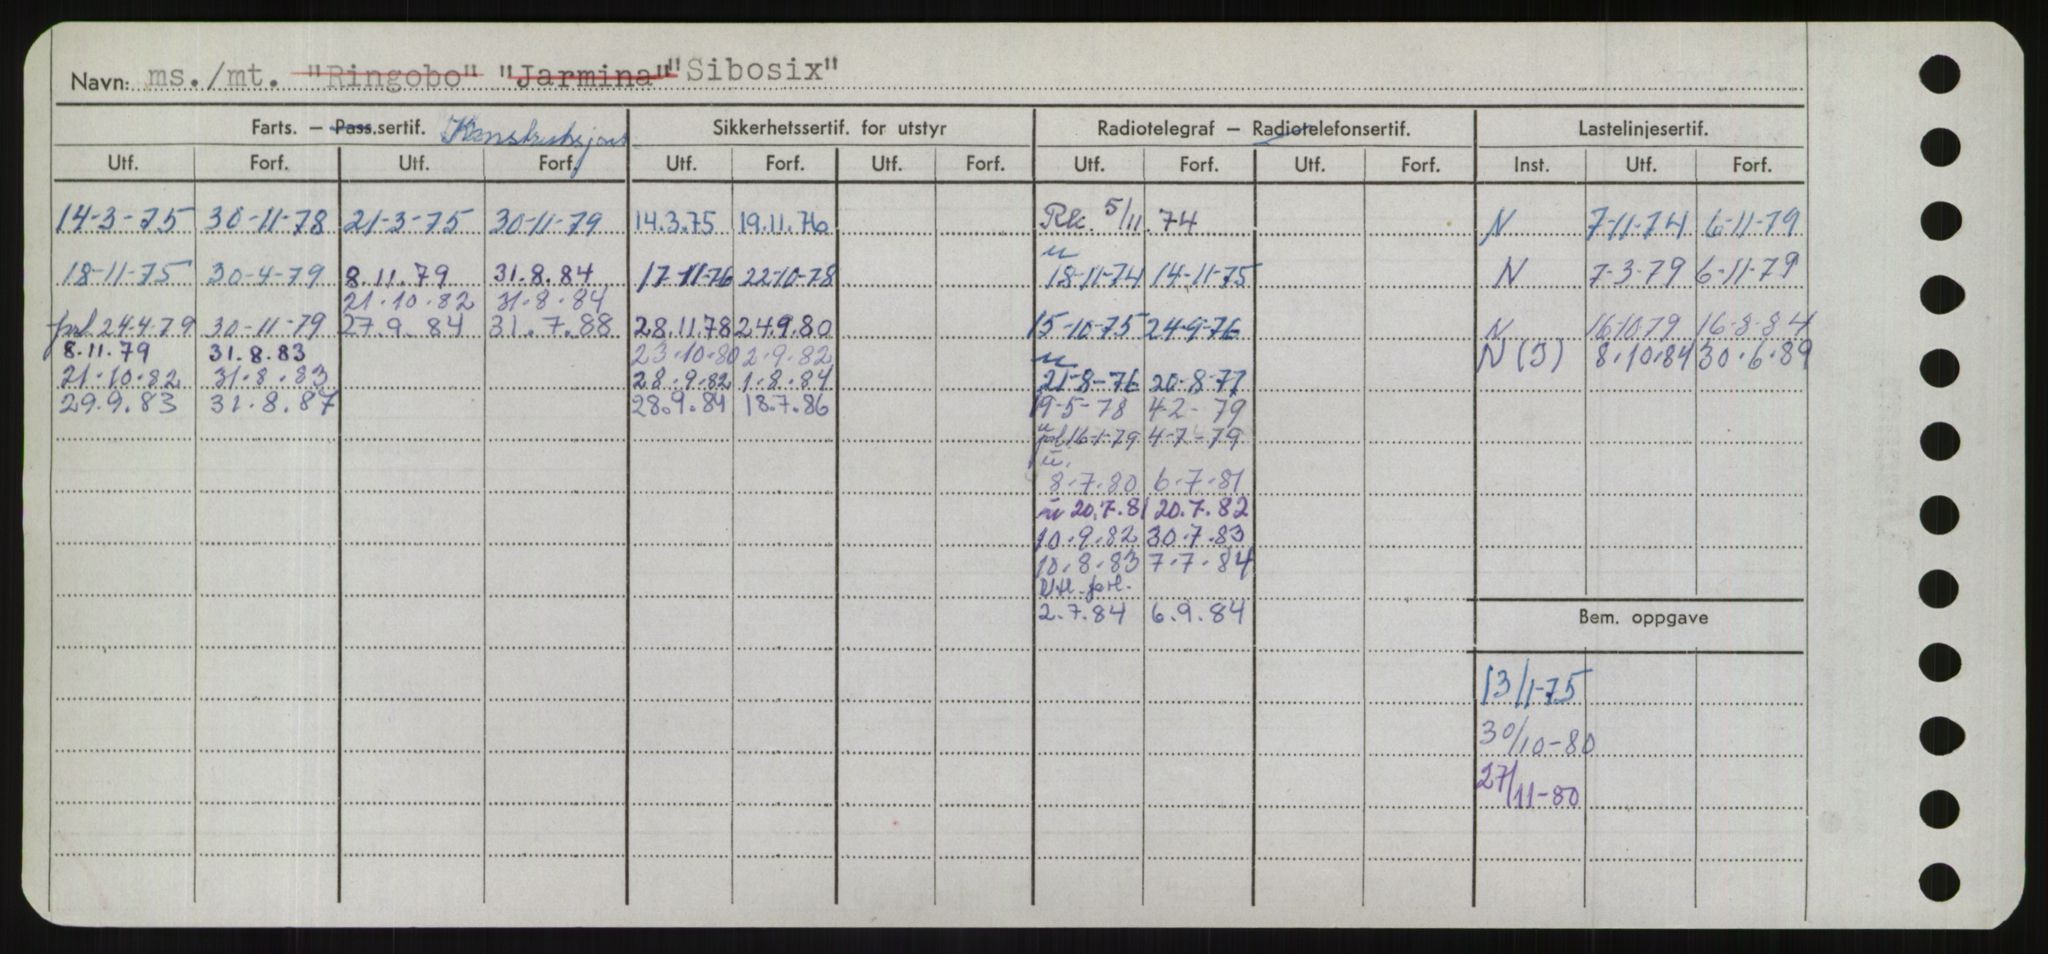 Navn: ms./mt. "Ringobo" "Jarmina" "Sibosix"
Farts. — Pass.sertif. Konstruksjons Sikkerhetssertif. for utstyr Radiotelegraf — Radiotelefonsertif. Lastelinjesertif.
Utf. Forf. Utf. Forf. Utf. Forf. Utf. Forf. Utf. Forf. Utf. Forf. Inst. Utf. Forf.
14-3-75 30-11-78 21-3-75 30-11-79 14.3.75 19.11.76 Rk. 5/11.74 N 7-11-74 6-11-79
u
18-11-75 30-4-79 8.11.79 31.8.84 17-11-76 22-10-78 18-11-74 14-11-75 N 7-3-79 6-11-79
21.10.82 31.8.84
forl 24.4.79 30-11-79 27.9.84 31.7.88 28.11.78 24.9.80 15-10-75 24-9-76 N 16.10.79 16-8-84
8.11.79 31.8.83 23.10.80 2.9.82 u N (J) 8.10.84 30.6.89
21.10.82 31.8.83 28.9.82 1.8.84 21-8-76 20-8-77
29.9.83 31.8.87 28.9.84 18.7.86 19-5-78 4-2-79
u
forl 16-1-79 4-7-79
u.
8.7.80 6.7.81
u 20.7.81 20.7.82
10.9.82 30.7.83
10.8.83 7.7.84
Utl. forl.
2.7.84 6.9.84
Bem. oppgave
13/1-75
30/10-80
27/11-80